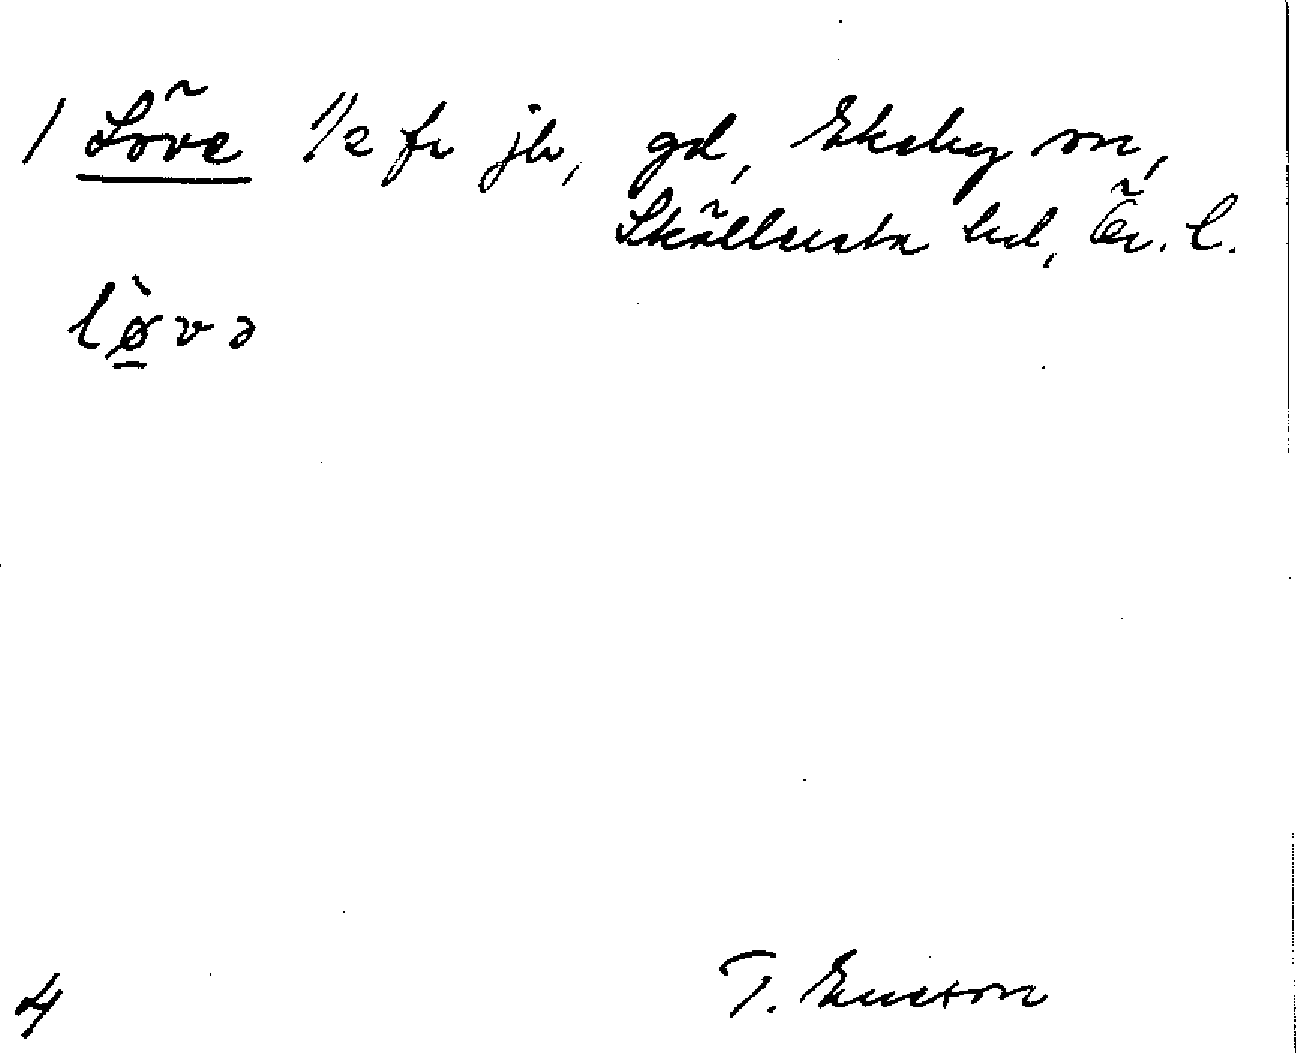 1 Löve 1/2 fr jb, gd, Ekeby sn,
Sköllersta hd, Ör. l.
lø̀və
4
T. Ericson